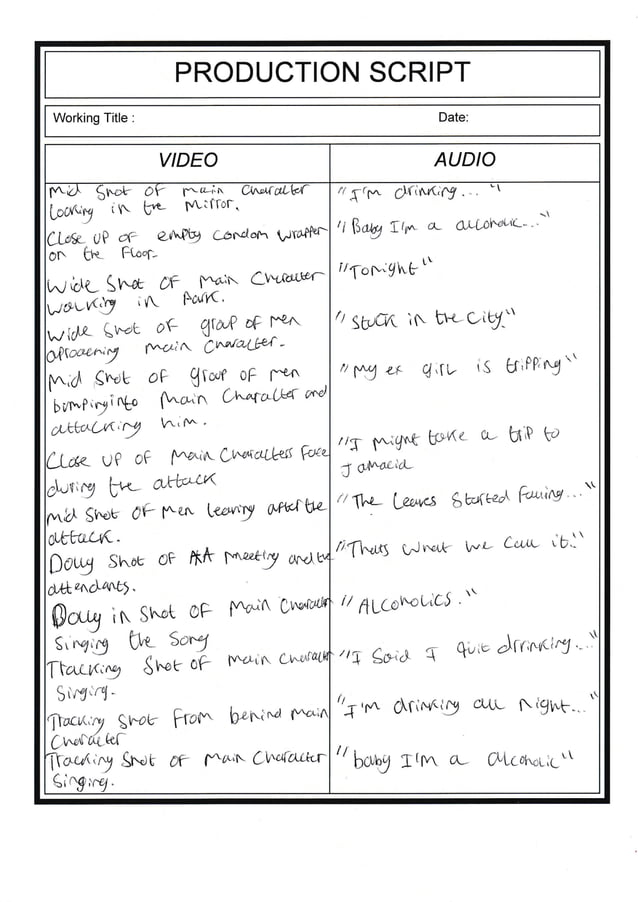 PRODUCTION SCRIPT
Working Title :
Date:
VIDEO
AUDIO
Mid Shot of main Character
Looking in the Mirror.
"I'm drinking... "
Close up of empty condom wrapper
on the Floor.
"Baby I'm a alcoholic..."
Wide Shot of Main Character
walking in Park.
"Tonight"
Wide Shot of group of men
aproaching main Character.
"Stuck in the City"
Mid Shot of group of men
bumping into Main Character and
attacking him.
"my ex girl is tripping"
Close up of Main Characters Face
during the attack
"I might take a trip to
Jamacia
Mid Shot of Men leaving after the
attack.
"The Leaves Started Falling..."
Dolly Shot of AA Meeting and the
attendants.
"Thats What We Call it."
Dolly in Shot of Main Character
Singing the Song
"Alcoholics."
Tracking Shot of main Character
Singing.
"I Said I quit drinking..."
Tracking Shot From behind main
Character
"I'm drinking all night..."
Tracking Shot of Main Character
Singing.
"baby I'm a alcoholic"